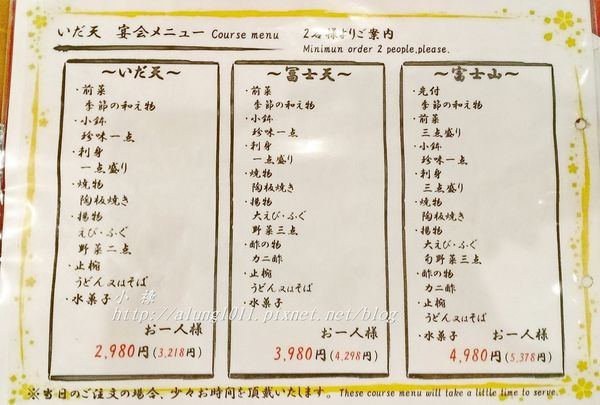 いだ天 宴会メニュー Course menu 2名様よりご案内
Minimun order 2 people,please.
〜いだ天〜
・前菜
季節の和え物
・小鉢
珍味一点
・刺身
一点盛り
・焼物
陶板焼き
・揚物
えび・ふぐ
野菜二点
・止椀
うどん又はそば
・水菓子
お一人様
2,980円(3,218円)
〜冨士天〜
・前菜
季節の和え物
・小鉢
珍味一点
・刺身
一点盛り
・焼物
陶板焼き
・揚物
大えび・ふぐ
野菜三点
・酢の物
カニ酢
・止椀
うどん又はそば
・水菓子
お一人様
3,980円(4,298円)
〜富士山〜
・先付
季節の和え物
・前菜
三点盛り
・小鉢
珍味一点
・刺身
三点盛り
・焼物
陶板焼き
・揚物
大えび・ふぐ
旬野菜三点
・酢の物
カニ酢
・止椀
うどん又はそば
・水菓子
お一人様
4,980円(5,378円)
小祿
http://alung1011.pixnet.net/blog
※当日のご注文の場合、少々お時間を頂戴いたします。These course menu will take a little time to serve.